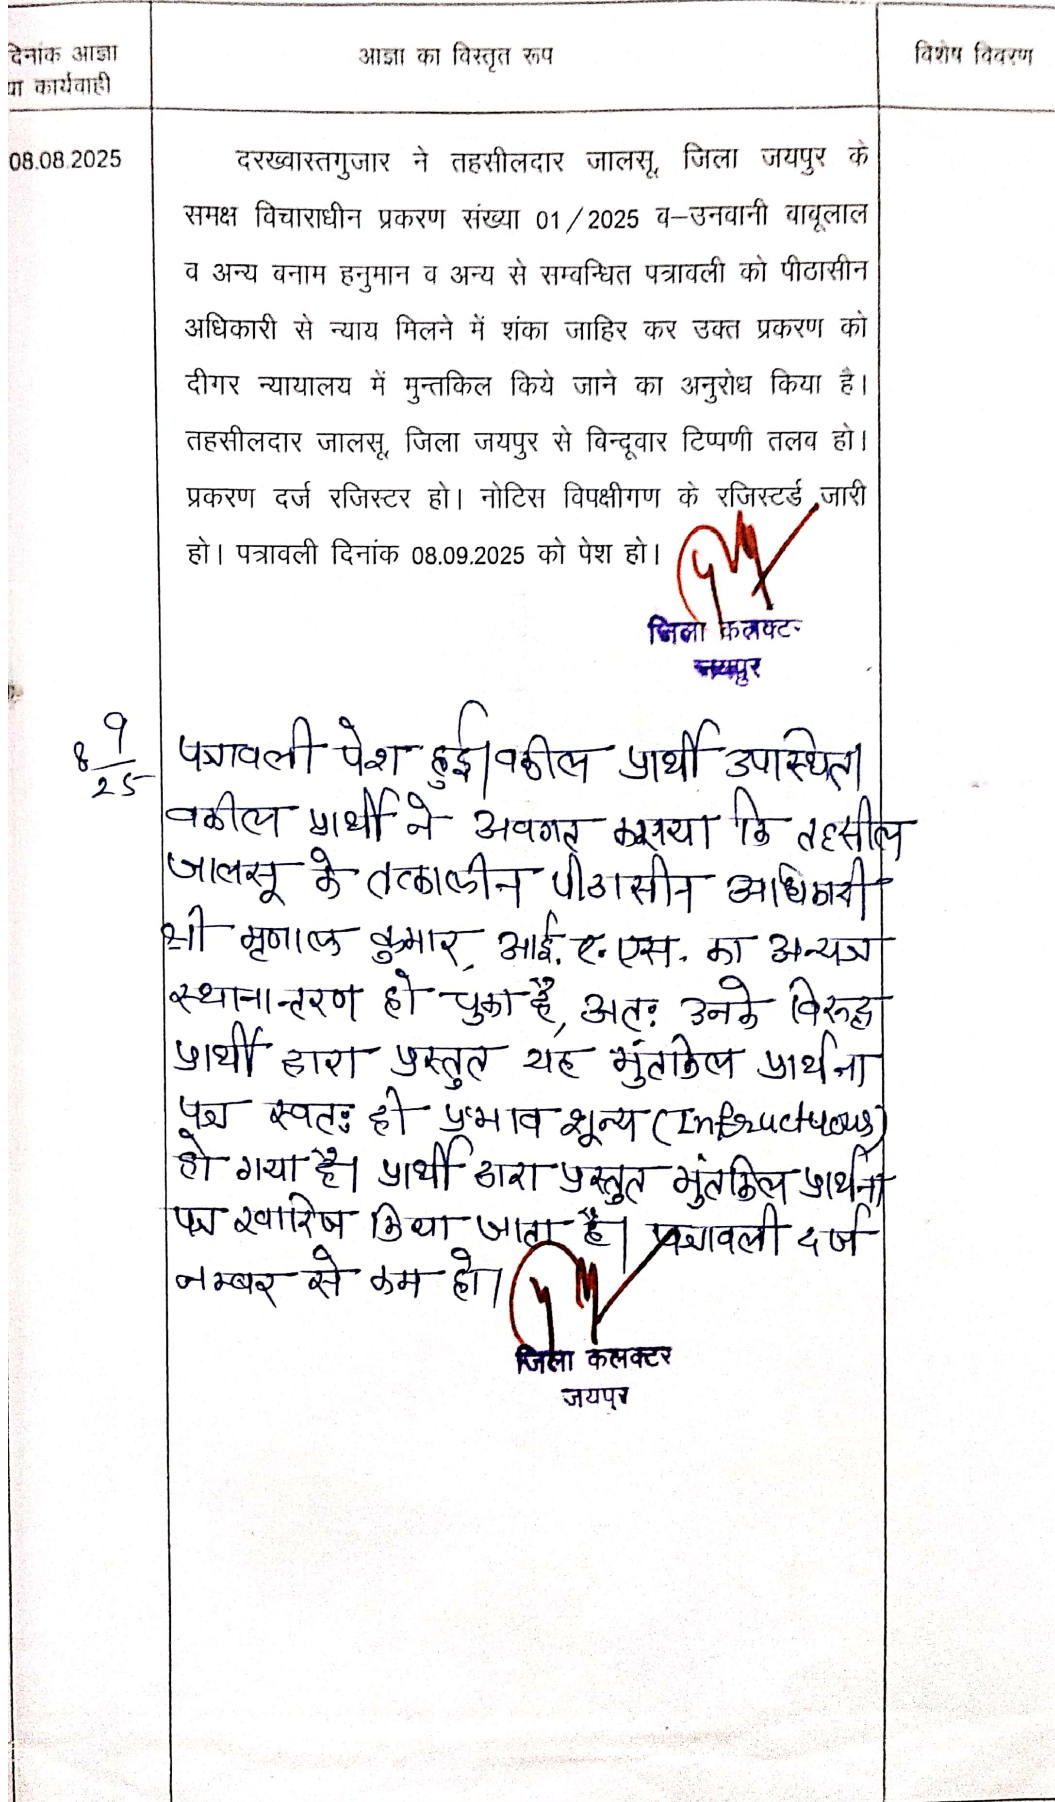 दिनांक आज्ञा
या कार्यवाही
आज्ञा का विस्तृत रूप
विशेष विवरण
08.08.2025
दरख्वास्तगुजार ने तहसीलदार जालसू, जिला जयपुर के
समक्ष विचाराधीन प्रकरण संख्या 01/2025 ब-उनवानी बाबूलाल
व अन्य बनाम हनुमान व अन्य से सम्बन्धित पत्रावली को पीठासीन
अधिकारी से न्याय मिलने में शंका जाहिर कर उक्त प्रकरण को
दीगर न्यायालय में मुन्तकिल किये जाने का अनुरोध किया है।
तहसीलदार जालसू, जिला जयपुर से बिन्दूवार टिप्पणी तलब हो।
प्रकरण दर्ज रजिस्टर हो। नोटिस विपक्षीगण के रजिस्टर्ड जारी
हो। पत्रावली दिनांक 08.09.2025 को पेश हो।
जिला कलक्टर
जयपुर
8 9/25
पत्रावली पेश हुई। वकील प्रार्थी उपस्थित।
वकील प्रार्थी ने अवगत कराया कि तहसील
जालसू के तत्कालीन पीठासीन अधिकारी
श्री मृणाल कुमार, आई.ए.एस. का अन्यत्र
स्थानान्तरण हो चुका है, अतः उनके विरुद्ध
प्रार्थी द्वारा प्रस्तुत यह मुंतकिल प्रार्थना
पत्र स्वतः ही प्रभाव शून्य (Infructuous)
हो गया है। प्रार्थी द्वारा प्रस्तुत मुंतकिल प्रार्थना
पत्र खारिज किया जाता है। पत्रावली दर्ज
नम्बर से कम हो।
जिला कलक्टर
जयपुर